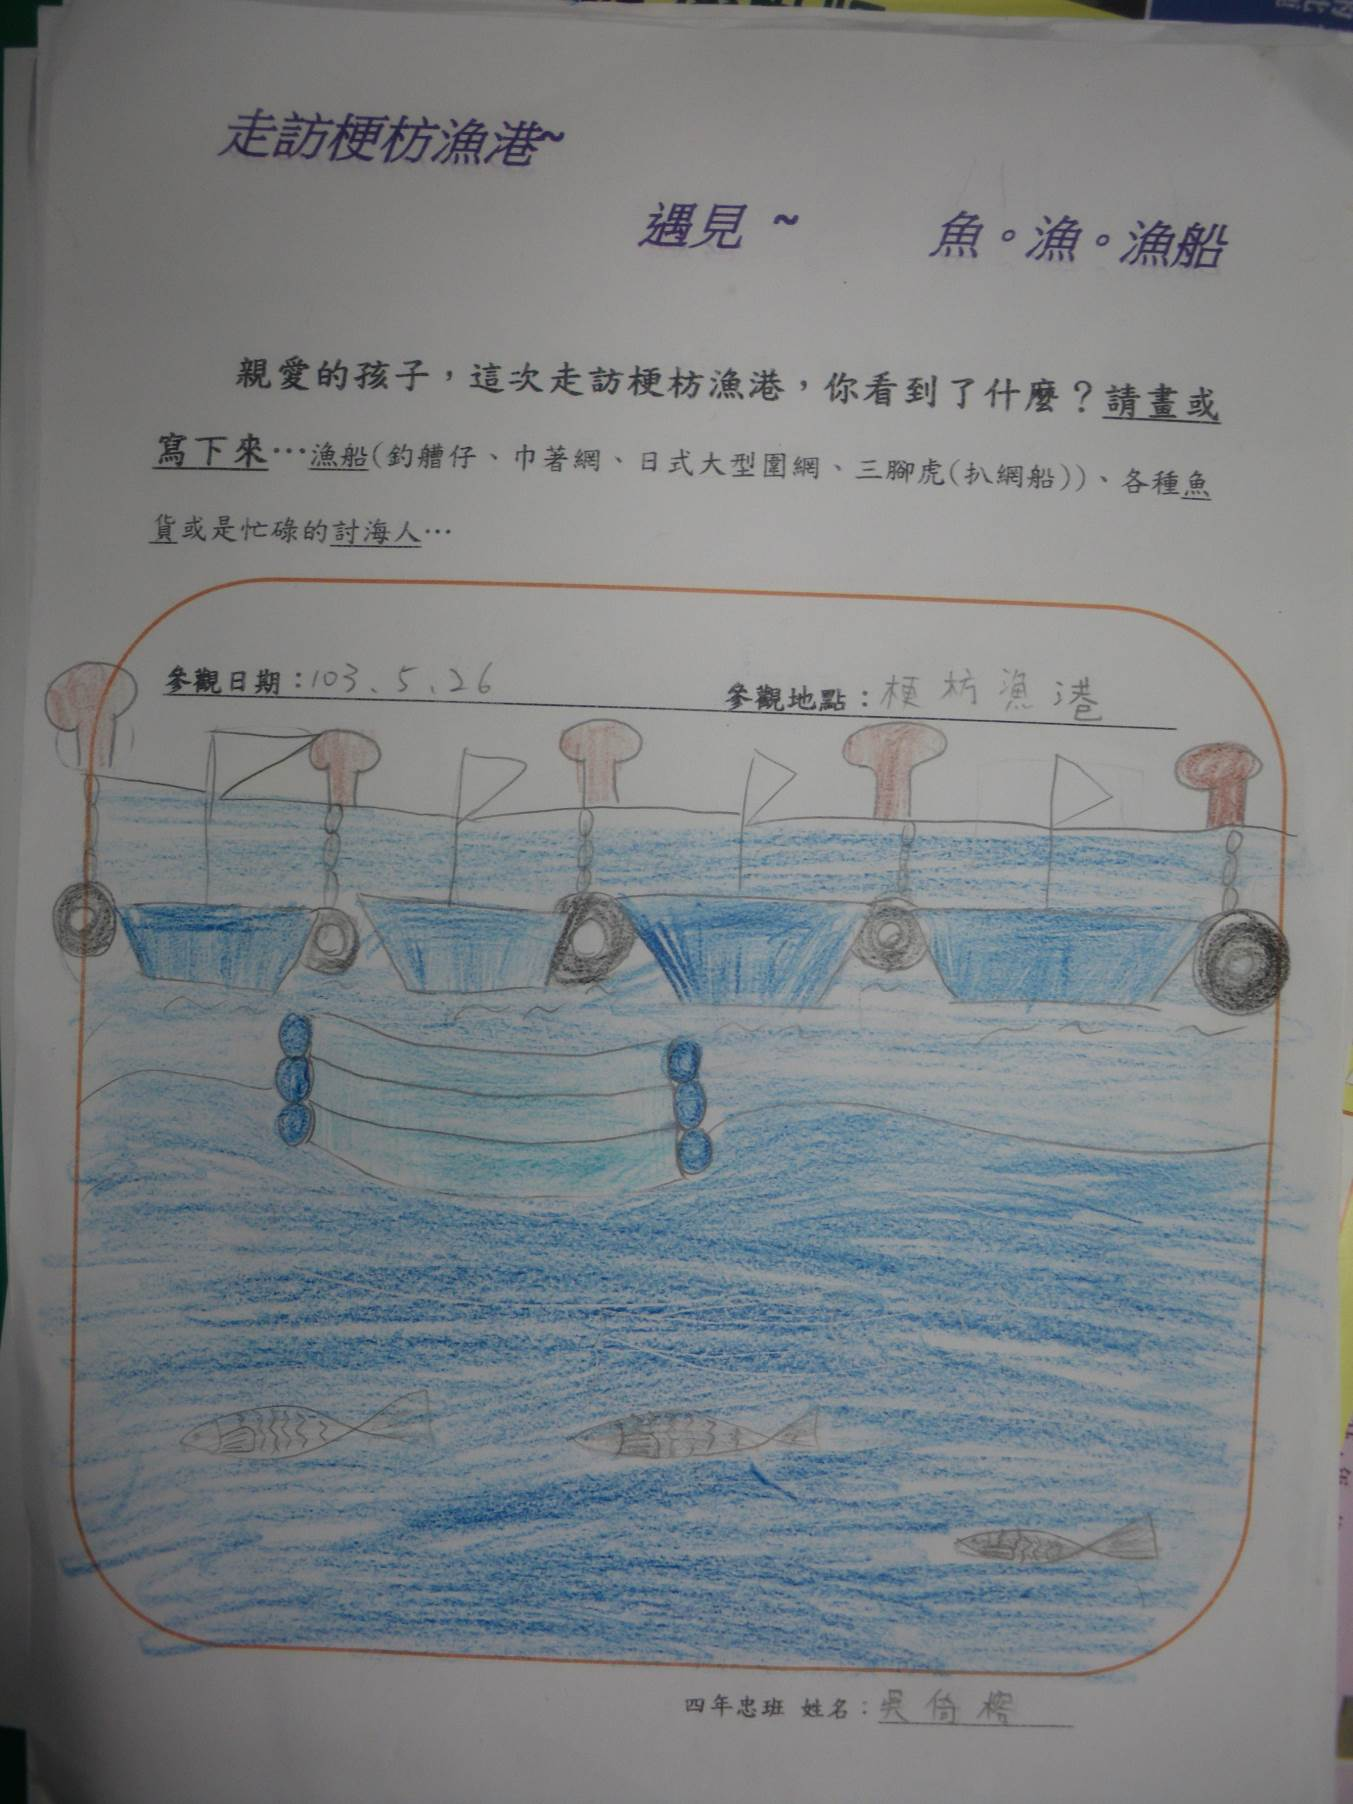 走訪梗枋漁港~
遇見 ~ 魚。漁。漁船
親愛的孩子，這次走訪梗枋漁港，你看到了什麼？請畫或
寫下來…漁船(釣艚仔、巾著網、日式大型圍網、三腳虎(扒網船))、各種魚
貨或是忙碌的討海人…
參觀日期：103、5、26 參觀地點：梗枋漁港
四年忠班 姓名：吳倚榕